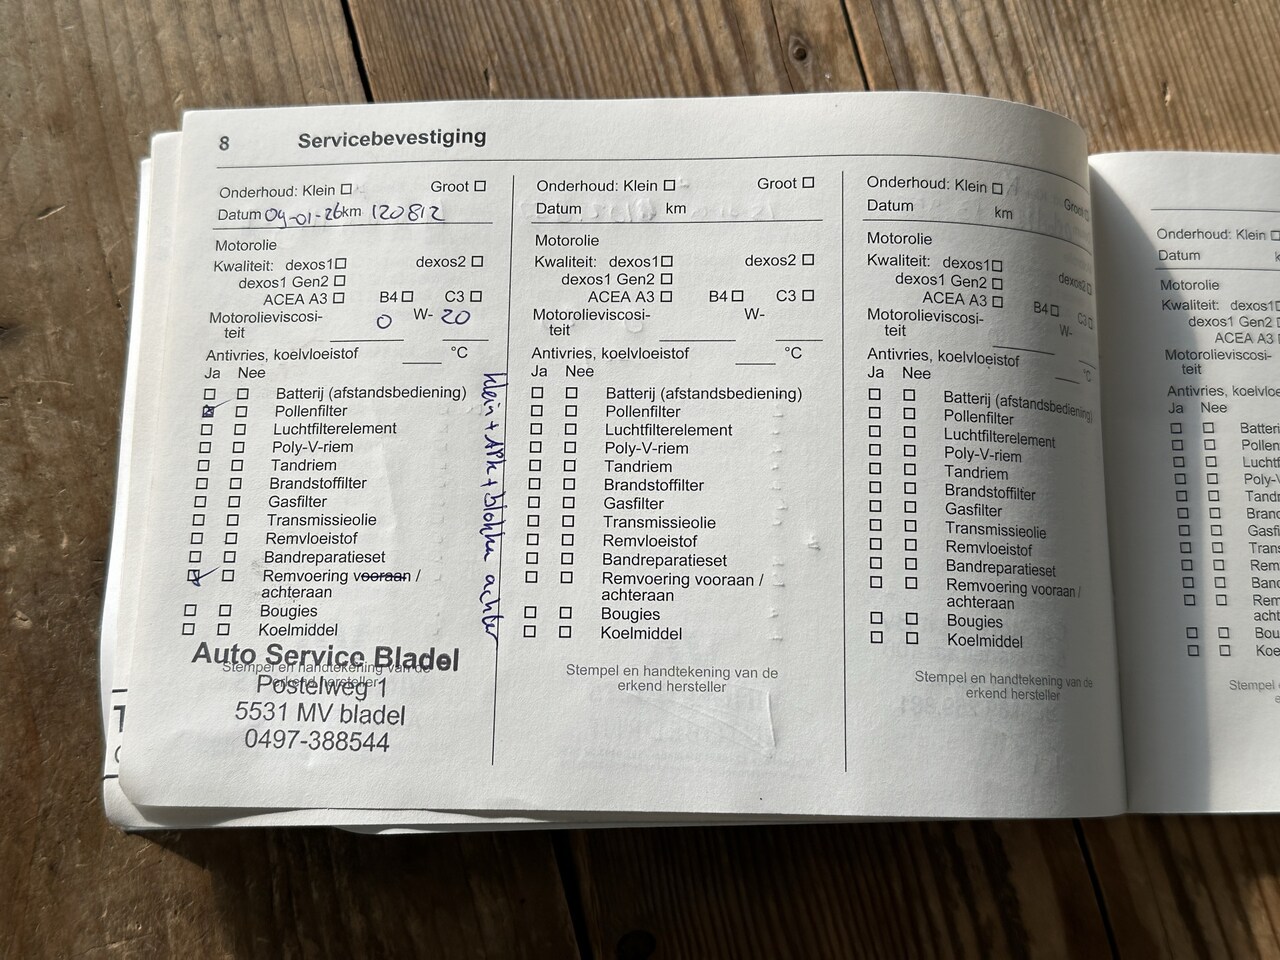 8 Servicebevestiging
Onderhoud: Klein Groot
Datum 09-01-26 km 120812
Motorolie
Kwaliteit: dexos1 dexos2
dexos1 Gen2
ACEA A3 B4 C3
Motorolieviscosi-
teit 0 W- 20
Antivries, koelvloeistof °C
Ja Nee
Batterij (afstandsbediening)
Pollenfilter
Luchtfilterelement
Poly-V-riem
Tandriem
Brandstoffilter
Gasfilter
Transmissieolie
Remvloeistof
Bandreparatieset
Remvoering vooraan /
achteraan
Bougies
Koelmiddel
klein + APK + blokken achter
Stempel en handtekening van de
erkend hersteller
Auto Service Bladel
Postelweg 1
5531 MV bladel
0497-388544
Onderhoud: Klein Groot
Datum km
Motorolie
Kwaliteit: dexos1 dexos2
dexos1 Gen2
ACEA A3 B4 C3
Motorolieviscosi-
teit W-
Antivries, koelvloeistof °C
Ja Nee
Batterij (afstandsbediening)
Pollenfilter
Luchtfilterelement
Poly-V-riem
Tandriem
Brandstoffilter
Gasfilter
Transmissieolie
Remvloeistof
Bandreparatieset
Remvoering vooraan /
achteraan
Bougies
Koelmiddel
Stempel en handtekening van de
erkend hersteller
Onderhoud: Klein Groot
Datum km
Motorolie
Kwaliteit: dexos1 dexos2
dexos1 Gen2
ACEA A3 B4 C3
Motorolieviscosi-
teit W-
Antivries, koelvloeistof °C
Ja Nee
Batterij (afstandsbediening)
Pollenfilter
Luchtfilterelement
Poly-V-riem
Tandriem
Brandstoffilter
Gasfilter
Transmissieolie
Remvloeistof
Bandreparatieset
Remvoering vooraan /
achteraan
Bougies
Koelmiddel
Stempel en handtekening van de
erkend hersteller
Onderhoud: Klein
Datum
Motorolie
Kwaliteit: dexos1
dexos1 Gen2
ACEA A3
Motorolieviscosi-
teit
Ja Nee